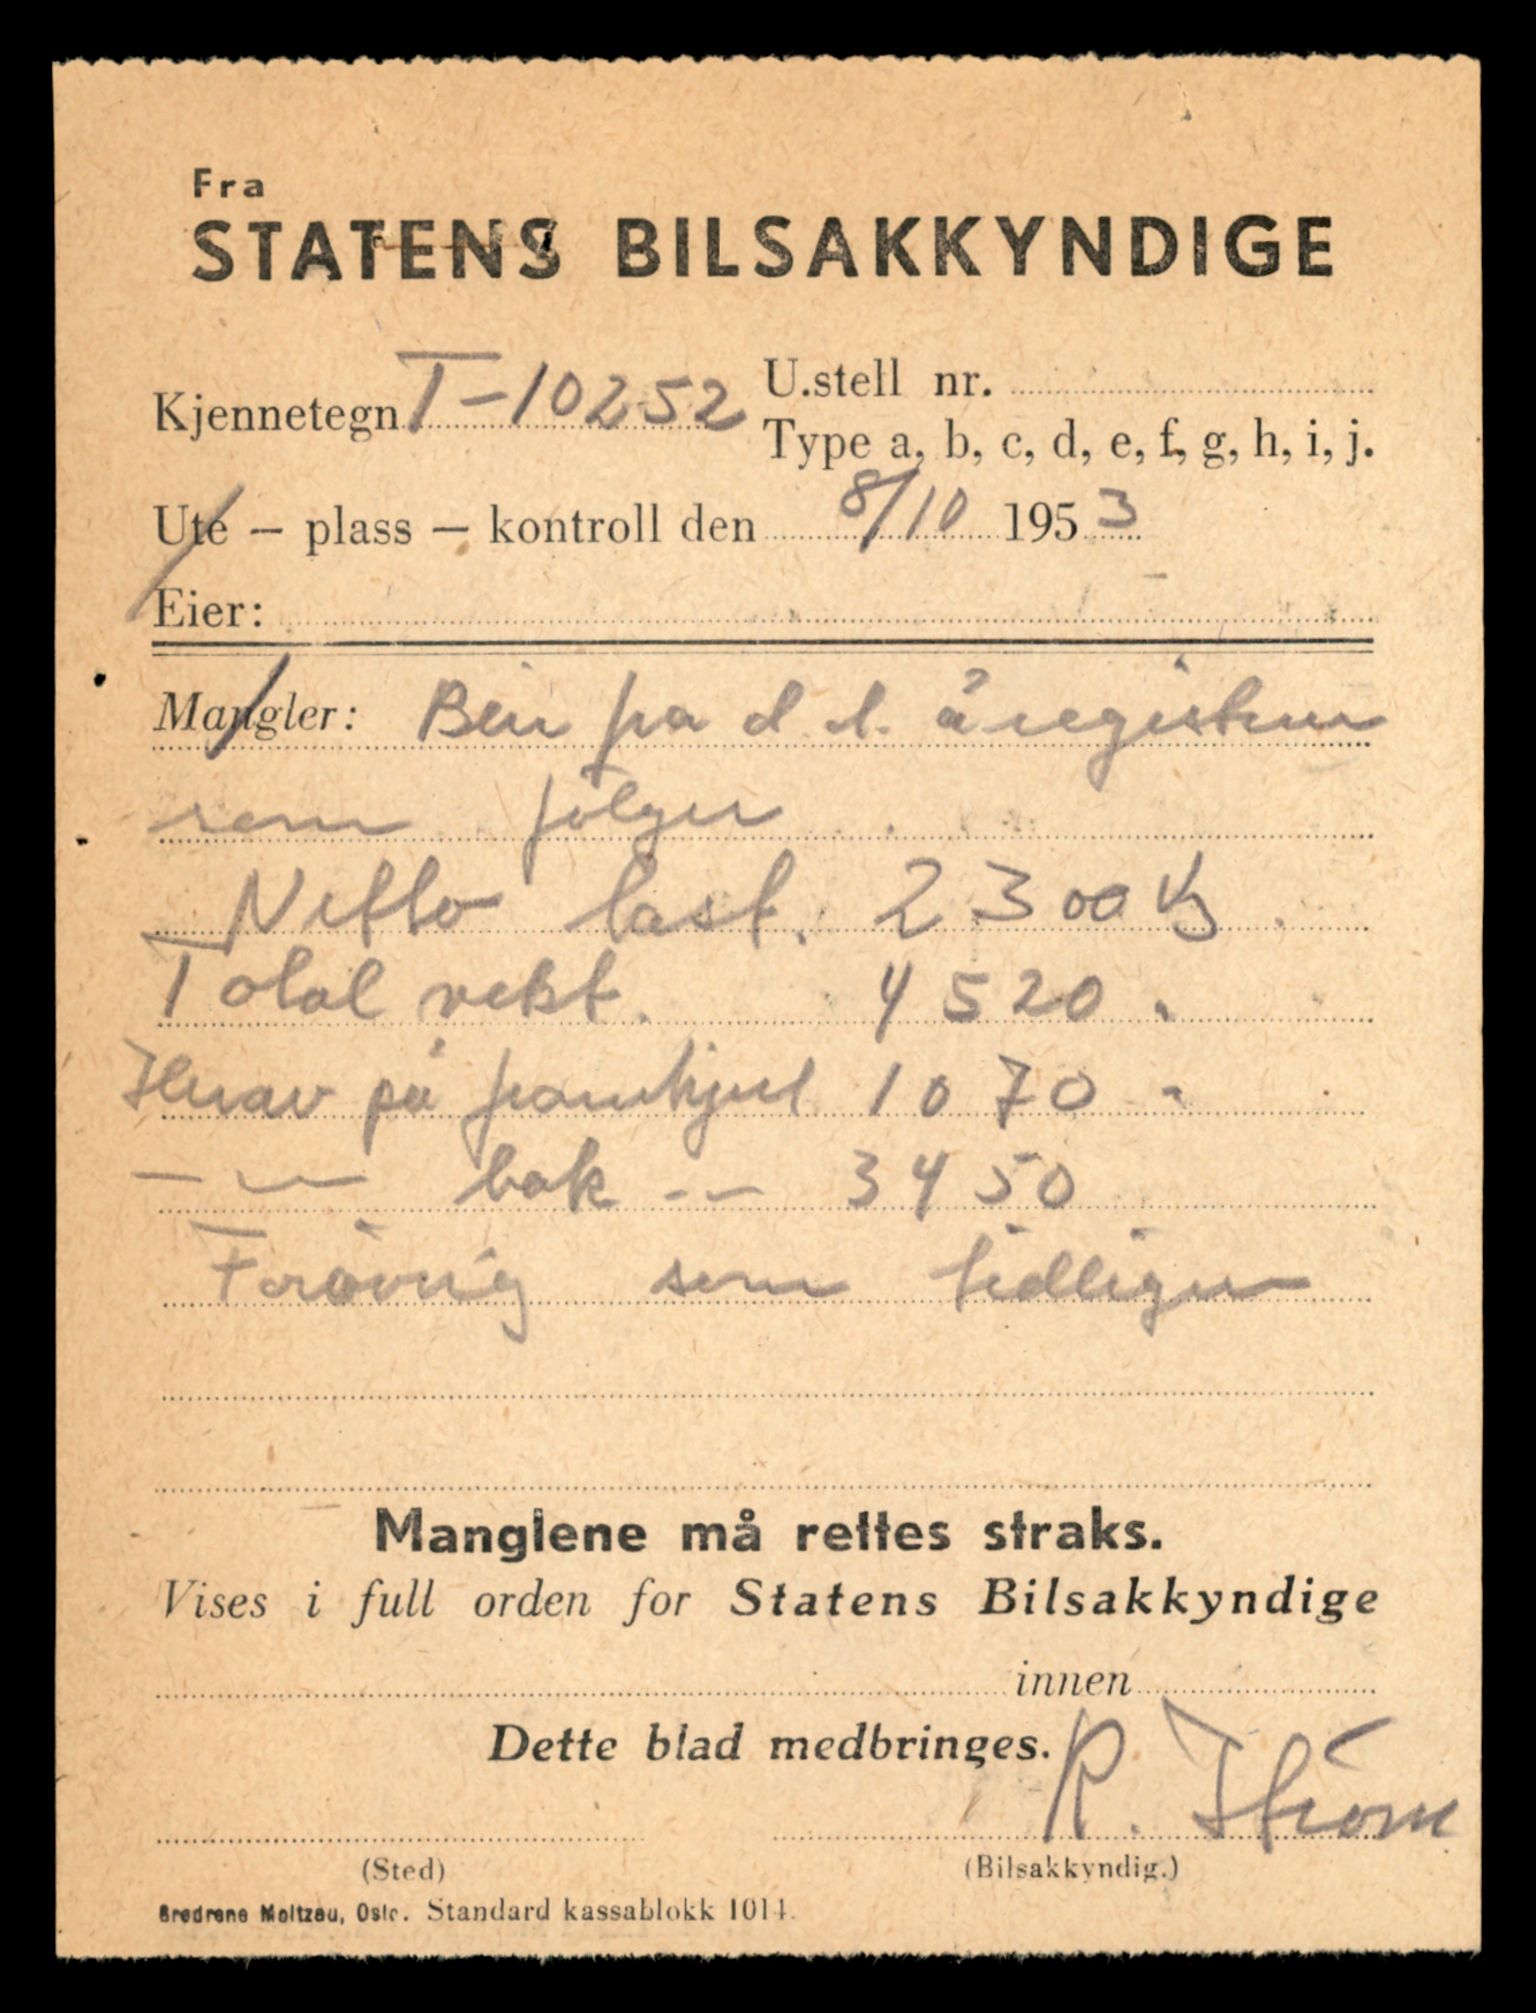 Fra
STATENS BILSAKKYNDIGE
Kjennetegn T-10252
U.stell nr.
Type a, b, c, d, e, f, g, h, i, j.
Ute – plass – kontroll den 8/10 1953
Eier:
Mangler: Ben fra d.d. å registrere
som følger
Netto last. 2300 kg
Total vekt. 4520 "
Herav på framhjul 1070 "
– " – bak – " – 3450
Forøvrig som tidligere
Manglene må rettes straks.
Vises i full orden for Statens Bilsakkyndige
innen
Dette blad medbringes.
R. Strøm
(Sted)
(Bilsakkyndig.)
Brødrene Moltzau, Oslo. Standard kassablokk 1014.